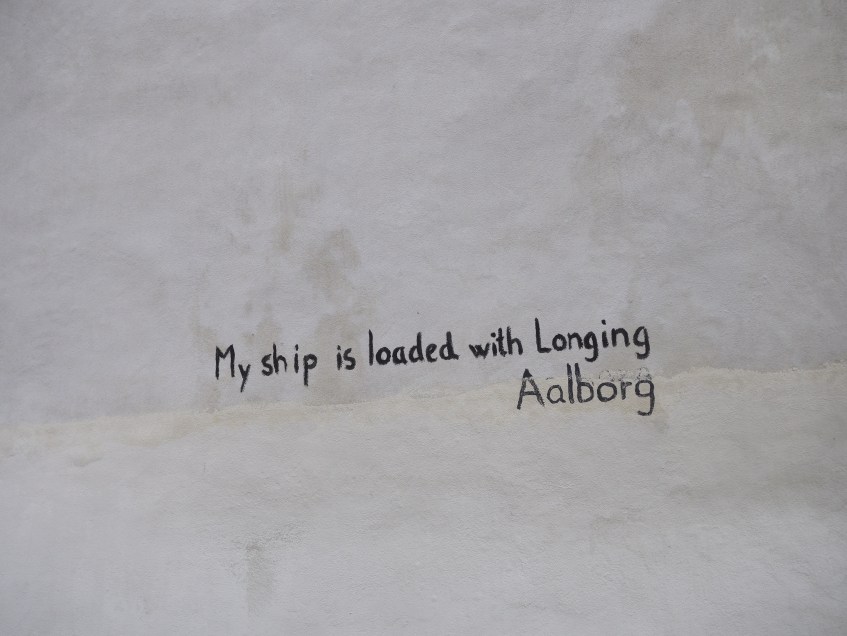 My ship is loaded with Longing
Aalborg